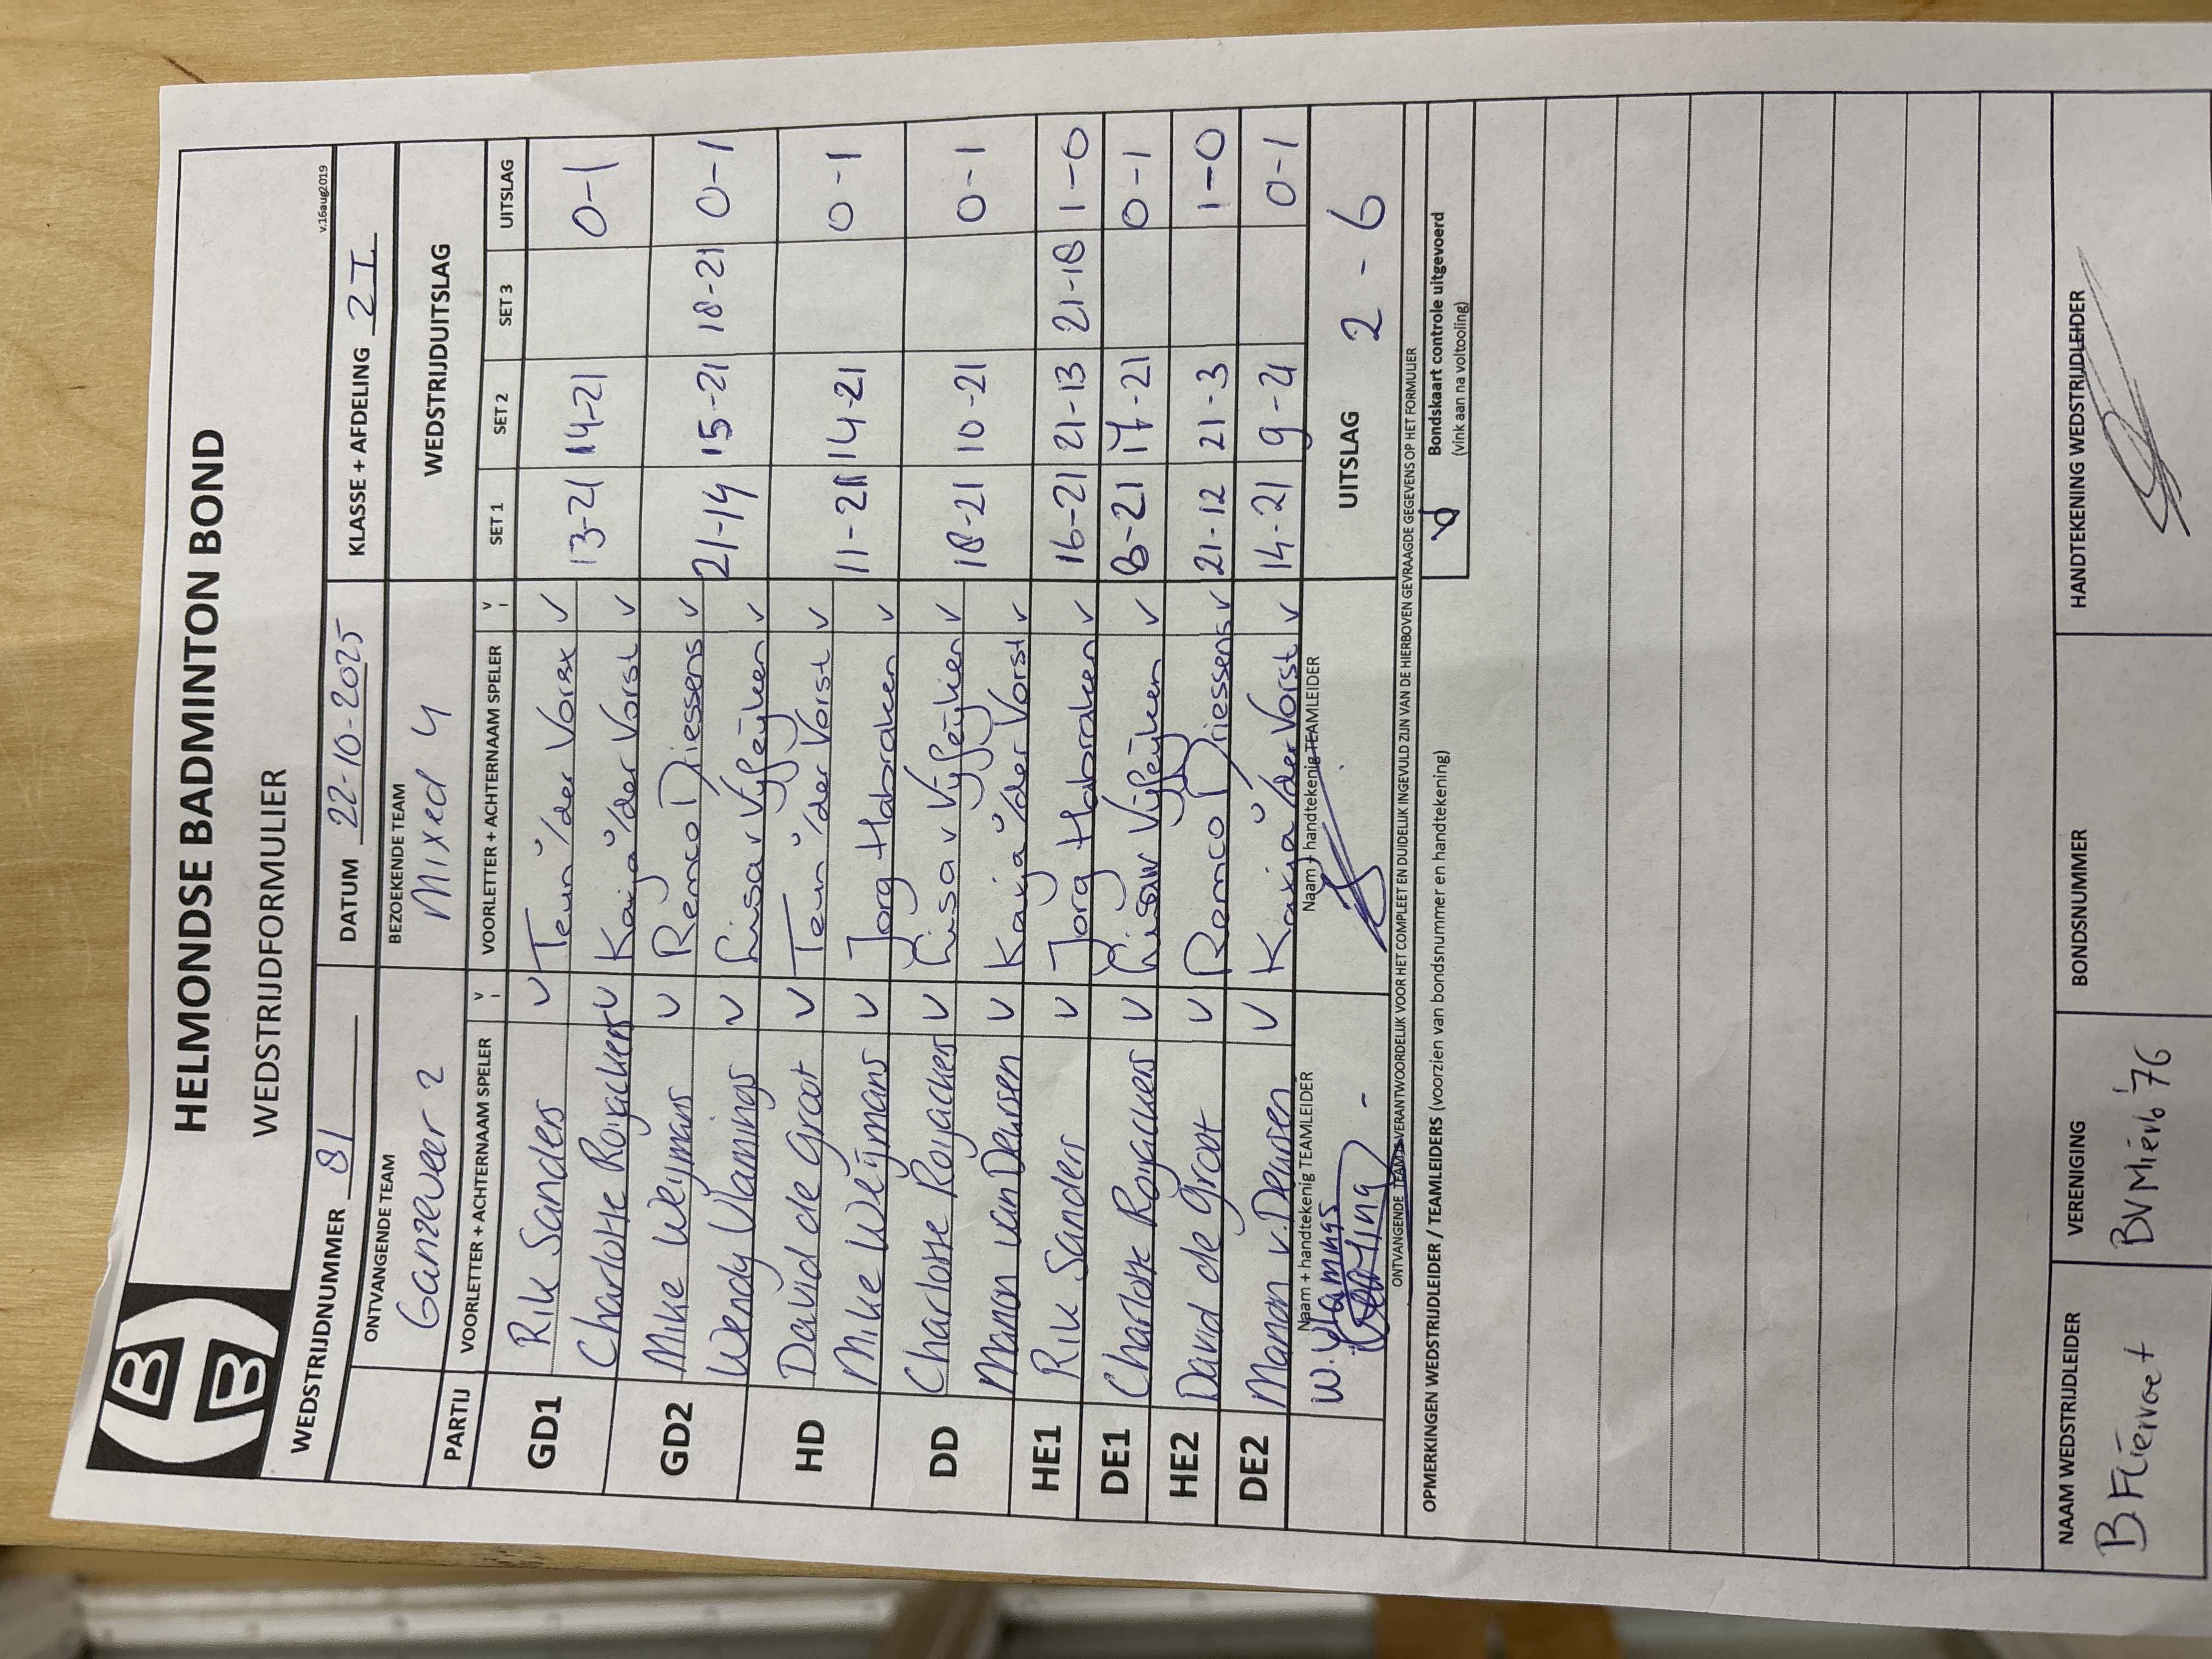 HELMONDSE BADMINTON BOND
WEDSTRIJDFORMULIER
v.16aug2019
WEDSTRIJDNUMMER 81 DATUM 22-10-2025 KLASSE + AFDELING 2I
ONTVANGENDE TEAM BEZOEKENDE TEAM WEDSTRIJDUITSLAG
Ganzeveer 2 Mixed 4
PARTIJ VOORLETTER + ACHTERNAAM SPELER V VOORLETTER + ACHTERNAAM SPELER V SET 1 SET 2 SET 3 UITSLAG
GD1 Rik Sanders v Teun v/der Vorst v 13-21 14-21 0-1
Charlotte Roijackers v Kaija v/der Vorst v
GD2 Mike Weijmans v Remco Driessens v 21-14 15-21 18-21 0-1
Wendy Vlamings v Lisa v Vijfeijken v
HD David de Groot v Teun v/der Vorst v 11-21 14-21 0-1
Mike Weijmans v Jorg Habraken v
DD Charlotte Roijackers v Lisa v Vijfeijken v 18-21 10-21 0-1
Manon van Deursen v Kaija v/der Vorst v
HE1 Rik Sanders v Jorg Habraken v 16-21 21-13 21-18 1-0
DE1 Charlotte Roijackers v Lisa v Vijfeijken v 8-21 17-21 0-1
HE2 David de Groot v Remco Driessens v 21-12 21-3 1-0
DE2 Manon v. Deursen v Kaija v/der Vorst v 14-21 9-21 0-1
Naam + handtekenig TEAMLEIDER Naam + handtekenig TEAMLEIDER UITSLAG 2-6
W. Vlamings
ONTVANGENDE TEAM IS VERANTWOORDELIJK VOOR HET COMPLEET EN DUIDELIJK INGEVULD ZIJN VAN DE HIERBOVEN GEVRAAGDE GEGEVENS OP HET FORMULIER
OPMERKINGEN WEDSTRIJDLEIDER / TEAMLEIDERS (voorzien van bondsnummer en handtekening) Bondskaart controle uitgevoerd
(vink aan na voltooling)
NAAM WEDSTRIJDLEIDER VERENIGING BONDSNUMMER HANDTEKENING WEDSTRIJDLEIDER
B Fiérvoet BVMierlo '76